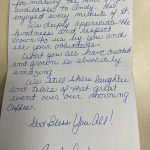 for making the
enjoyed every minute of it.
We deeply appreciate the
kindness and respect
given to us by you and
all your volunteers.
What you all have created
and grown is absolutely
amazing.
We still share laughter
and tears of that great
event over our morning
coffee.
God Bless You All!